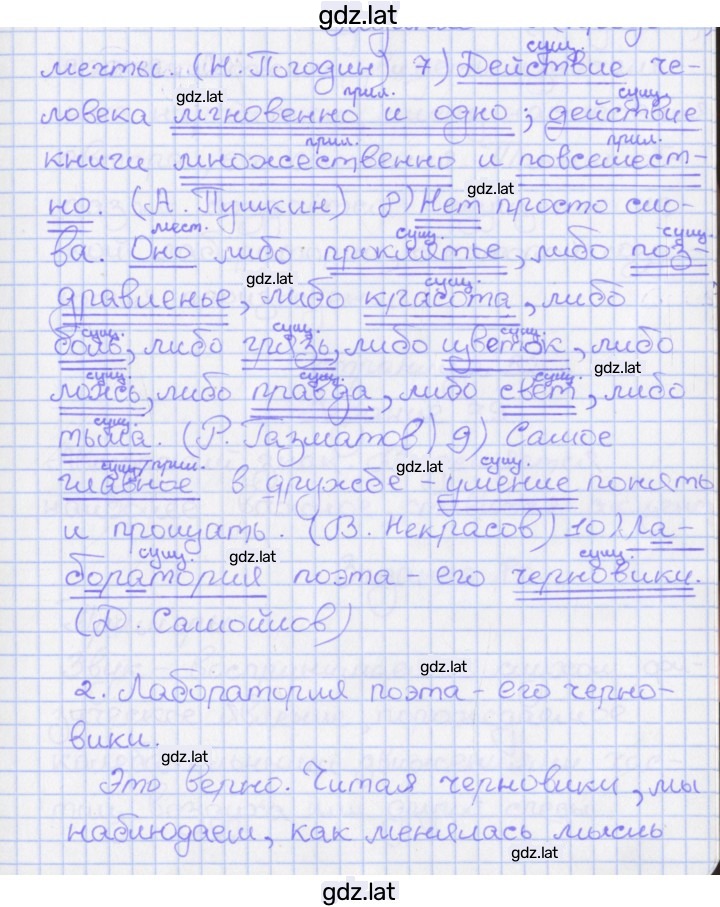 gdz.lat
сущ.
мечты. (Н. Погодин) 7) Действие че-
gdz.lat прил. сущ.
ловека мгновенно и одно; действие
прил. прил.
книги множественно и повсемест-
gdz.lat
но. (А. Пушкин) 8) Нет просто сло-
мест. сущ. сущ.
ва. Оно либо проклятье, либо поз-
gdz.lat сущ.
дравленье, либо красота, либо
сущ. сущ. сущ.
боль, либо грязь, либо цветок, либо
gdz.lat
сущ. сущ. сущ.
ложь, либо правда, либо свет, либо
сущ.
тьма. (Р. Газматов) 9) Самое
сущ./прил. gdz.lat сущ.
главное в дружбе - умение понять
и прощать. (В. Некрасов) 10) Ла-
сущ. gdz.lat сущ.
боратория поэта - его черновики.
(Д. Самойлов)
gdz.lat
2. Лаборатория поэта - его черно-
вики.
gdz.lat
Это верно. Читая черновики, мы
наблюдаем, как менялась мысль
gdz.lat
gdz.lat